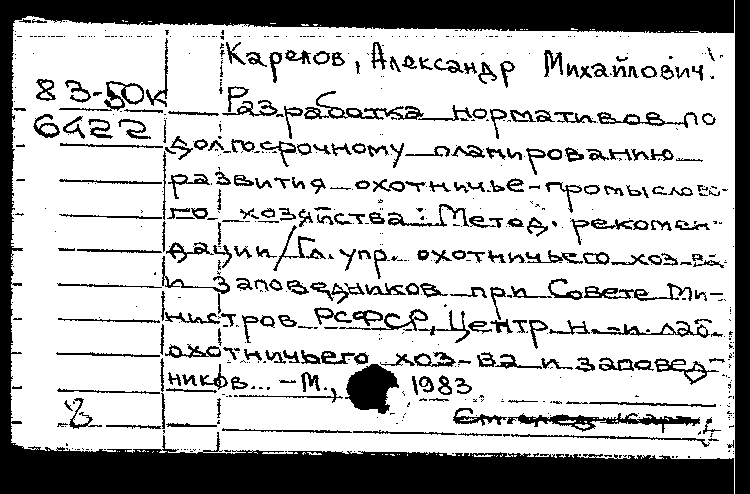 Карелов, Александр Михайлович.
83-50к
6422
Разработка нормативов по
долгосрочному планированию
развития охотничье-промыслово-
го хозяйства: Метод. рекомен-
дации/Гл. упр. охотничьего хоз-ва
и заповедников при Совете Ми-
нистров РСФСР, Центр. н.-и. лаб.
охотничьего хоз-ва и заповед-
ников... - М., 1983.
См. след. карт.